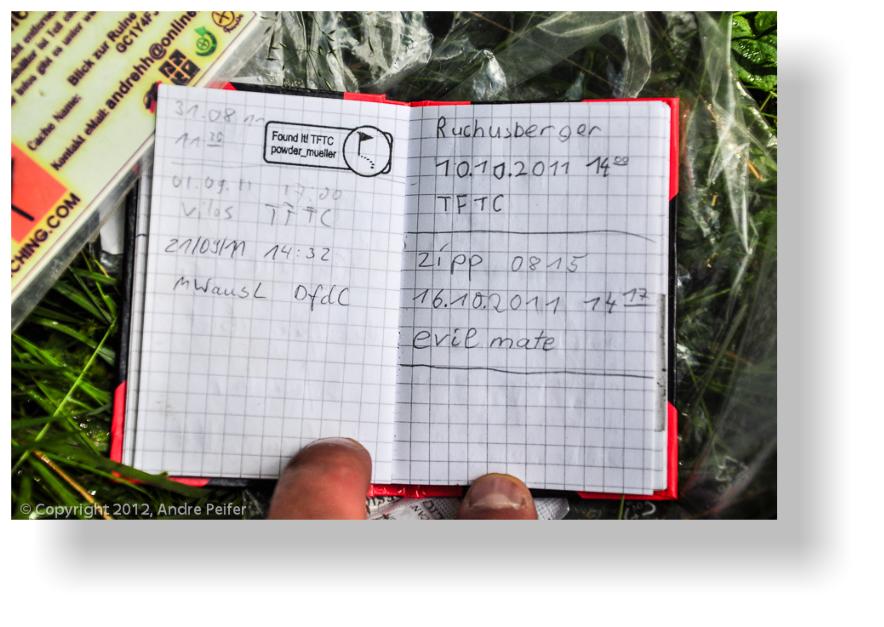 Blick zur Ruine
GC1Y4F
Cache Name:
Kontakt eMail: andrehh@online
CHING.COM
31.08.11
11:30
Found it! TFTC
powder_mueller
01.09.11 17:00
Vilas TFTC
21/09/11 14:32
MWausL DfdC
Ruchusberger
10.10.2011 14 00
TFTC
zipp 0815
16.10.2011 14 17
evil mate
© Copyright 2012, Andre Peifer